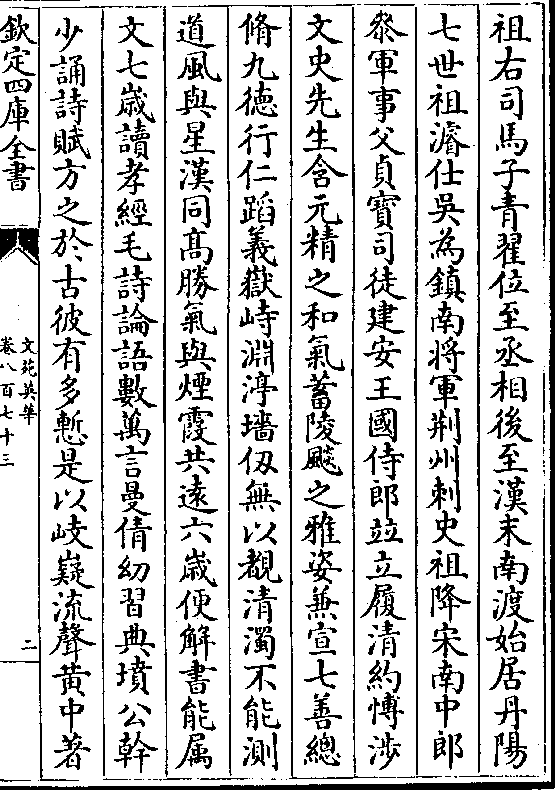 祖右司馬子青翟位至丞相後至漢末南渡始居丹陽
七世祖濬仕吳為鎮南將軍荆州刺史祖降宋南中郎
叅軍事父貞寶司徒建安王國侍郎竝立履清約愽涉
文史先生含元精之和氣蓄陵颷之雅姿兼宣七善總
脩九德行仁蹈義嶽峙淵渟墻仭無以覩清濁不能測
道風與星漢同髙勝氣與煙霞共遠六歳便解書能属
文七歳讀孝經毛詩論語數萬言曼倩幼習典墳公幹
少誦詩賦方之於古彼有多慙是以岐嶷流聲黄中著
欽定四庫全書
文苑英華
卷八百七十三
二